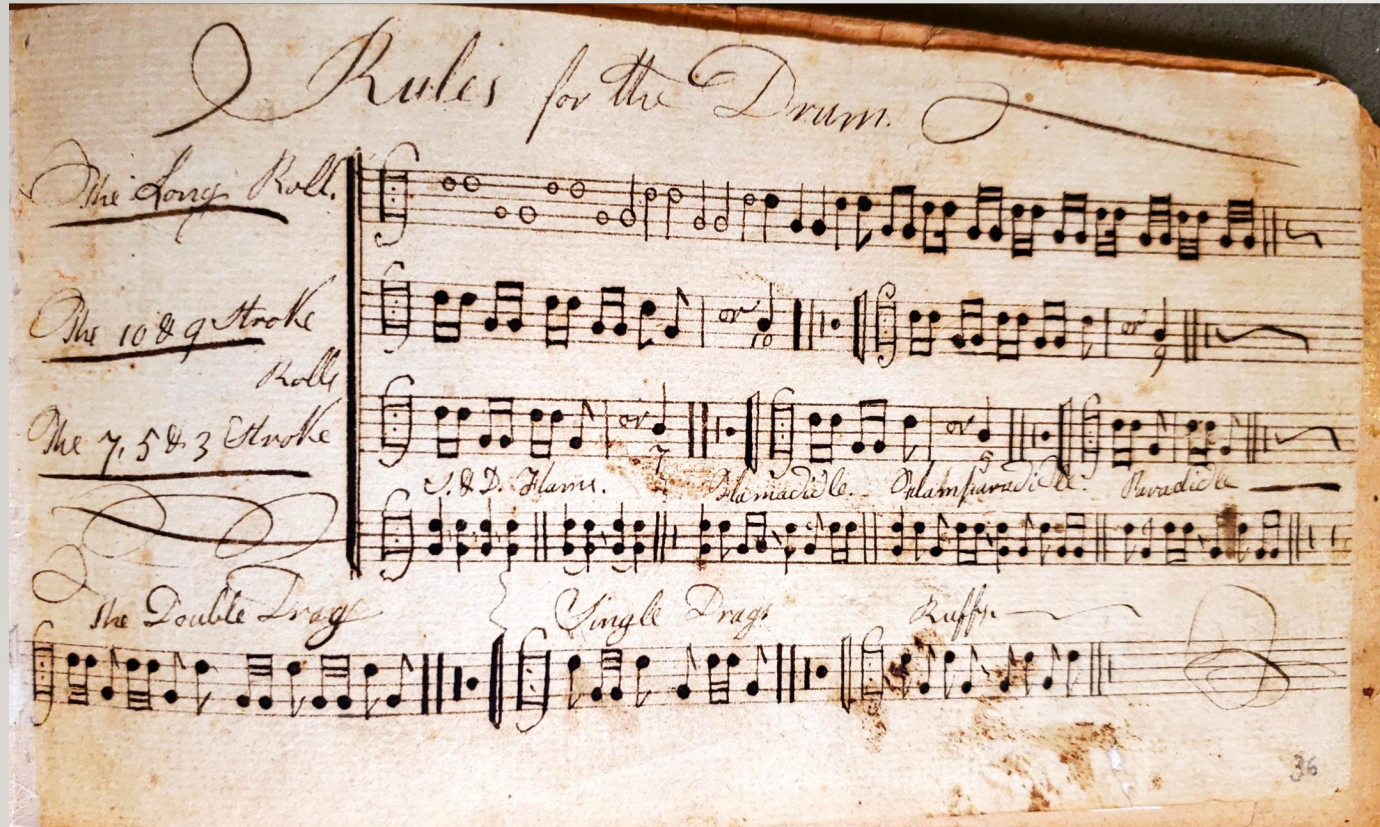 Rules for the Drum.
The Long Roll.
The 10 & 9 Stroke
Rolls
or
10
or
9
The 7, 5 & 3 Stroke
or
7
or
5
S. & D. Flams. Flamadidle. Flamparadidle. Paradidle
The Double Drags Single Drags Ruffs.
36